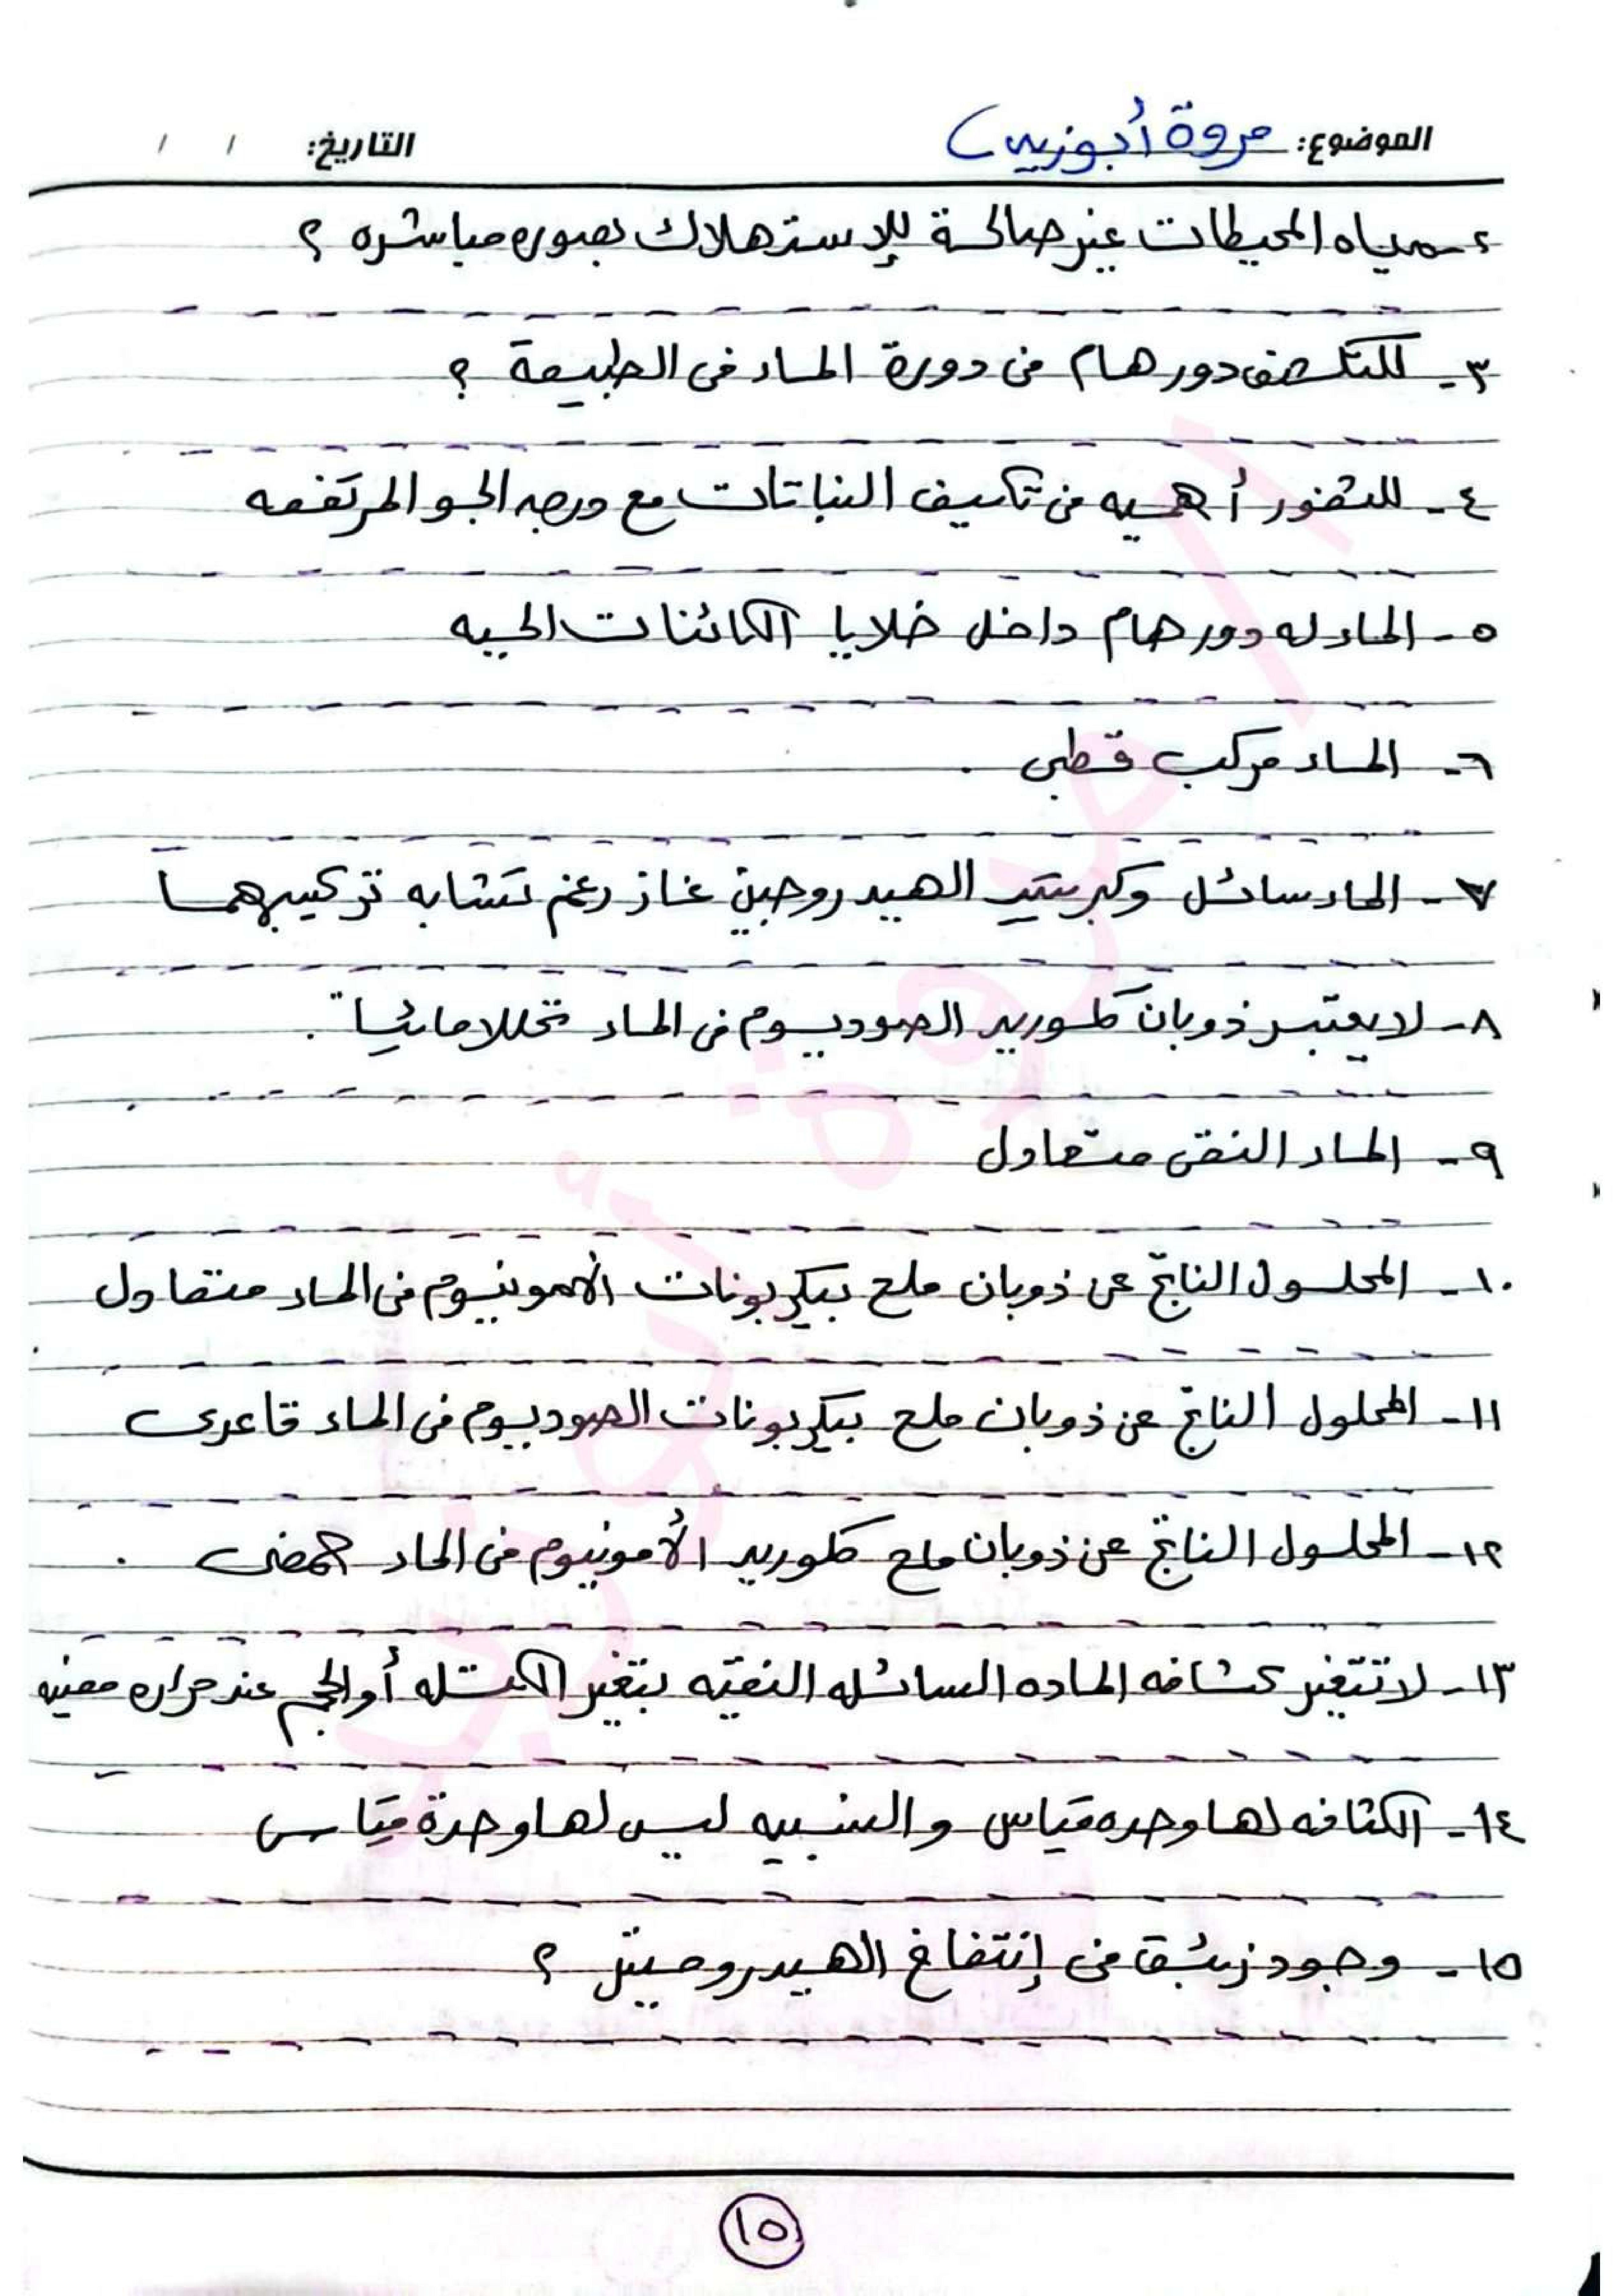 الموضوع: مروة أبوزيد التاريخ: / /
٢- مياه المحيطات غير صالحة للإستهلاك بصوره مباشره ؟
٣- للتكثف دور هام فى دورة الماء فى الطبيعة ؟
٤- للثغور أهميه فى تكيف النباتات مع درجه الجو المرتفعه
٥- الماء له دور هام داخل خلايا الكائنات الحيه
٦- الماء مركب قطبى .
٧- الماء سائل وكبريتيد الهيدروجين غاز رغم تشابه تركيبهما
٨- لا يعتبر ذوبان كلوريد الصوديوم فى الماء تحللا مائياً .
٩- الماء النقى متعادل
١٠- المحلول الناتج عن ذوبان ملح بيكربونات الأمونيوم فى الماء متعادل .
١١- المحلول الناتج عن ذوبان ملح بيكربونات الصوديوم فى الماء قاعدى
١٢- المحلول الناتج عن ذوبان ملح كلوريد الأمونيوم فى الماء حمضى .
١٣- لا تتغير كثافه الماده السائله النقيه بتغير الكتله أو الحجم عند حراره معينه
١٤- الكثافه لها وحده قياس والنسبيه ليس لها وحدة قياس
١٥- وجود زئبق فى إنتفاخ الهيدروميتر ؟
١٥
مروة أبوزيد